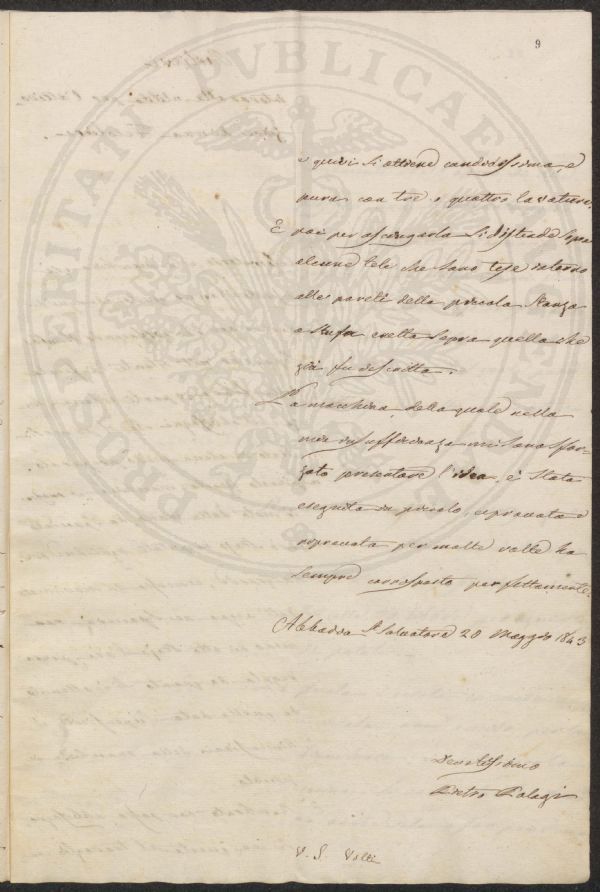 9
e quivi si ottiene candidissima, e
pura con tre o quattro lavature.
E poi per asciugarla si distende sopra
alcune tele che sono tese intorno
alle pareti della piccola stanza
a stufa eretta sopra quella che
già fu descritta.
La macchina della quale nella
mia insufficienza mi sono sfor-
zato presentare l'idea, è stata
eseguita in piccolo, e provata e
riprovata per molte volte ha
sempre corrisposto perfettamente.
Abbadia S. Salvatore 20 Maggio 1843
Devotissimo
Pietro
V. S. Volti
PROSPERITATI PUBLICAE AUGENDAE